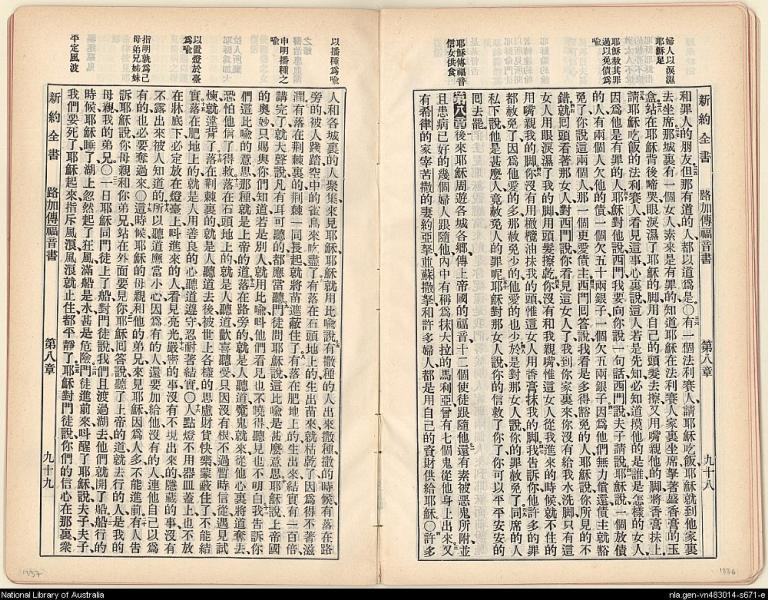 婦人以淚濕
耶穌足
耶穌赦其罪
過以免債為
喻
耶穌傳福音
信女供食
新約全書 路加傳福音書 第八章 九十八
和罪人的朋友但那有道的人都以道為是○有一個法利賽人請耶穌吃飯耶穌就到他家裏
去坐席那城裏有一個女人素來是有罪的知道耶穌在法利賽人家裏坐席拏著盛香膏的玉
盒站在耶穌背後啼哭眼淚濕了耶穌的脚用自己的頭髮去擦又用嘴親他的脚將香膏抹上
請耶穌吃飯的法利賽人看見這事心裏說這人若是先知必知道摸他的是誰是怎樣的女人
因為他是有罪的人耶穌對他說西門我要向你說一句話西門說夫子請說耶穌說一個放債
的人有兩個人欠他的債一個欠五十兩銀子一個欠五兩銀子因為他們無力償還債主就豁
免了你說這兩個人那一個更愛債主西門回答說我看是多得豁免的人耶穌說你所見的不
錯就回頭看著那女人對西門說你看見這女人了我到你家裏來你沒有給我水洗脚只有這
女人用眼淚濕了我的脚用頭髮擦乾你沒有和我親嘴惟這女人從我進來的時候就不住的
用嘴親我的脚你沒有用橄欖油抹我的頭惟這女人用香膏抹我的脚我告訴你他許多的罪
都赦免了因為他愛的多那赦免少的他愛的也少於是對那女人說你的罪赦免了同席的人
私下說他是甚麼人竟赦免人的罪呢耶穌對那女人說你的信救了你了你可以平平安安的
回去罷
第八章 後來耶穌周遊各城各鄉傳上帝國的福音十二個使徒跟隨他還有素被惡鬼所附並
且患病已好的幾個婦人跟隨他內中有稱為抹大拉的馬利亞曾有七個鬼從他身上出來又
有希律的家宰苦撒的妻約亞拏並蘇撒拏和許多婦人都是用自己的資財供給耶穌○許多
以播種為喻
申明播種之
喻
以置燈於臺
為喻
指明就為己
母弟兄姊妹
平定風波
人和各城裏的人聚集來見耶穌耶穌就用比喻說有撒種的人出來撒種撒的時候有落在路
旁的被人踐踏空中的雀鳥來吃盡了有落在石頭地上的生出苗來就枯乾了因為得不著滋
潤有落在荊棘裏的荊棘一同長起就將苗遮蔽住了有落在肥地上的生出來結實有一百倍
講完了就大聲說凡有耳可聽的都應當聽門徒問耶穌說這比喻是甚麼意思耶穌說上帝國
的奧妙只賜與你們知道若是別人就用比喻叫他們看見也不曉得聽見也不明白我告訴你
們這比喻的意思那種就是上帝的道落在路旁的就是人聽道魔鬼就來從他心裏將道奪去
恐怕他信了得救落在石頭地上的就是人聽道歡喜聽受只因沒有根不過暫時信從遇見試
煉就違背了落在荊棘裏的就是人聽道去後被世上各樣的思慮財貨快樂蒙蔽住了不能結
實落在肥地上的就是人用善良的心聽道遵守忍耐著結實○人點燈不用器皿蓋上也不放
在牀底下必定放在燈臺上叫進來的人看見亮光嚴密的事沒有不現出來的隱藏的事沒有
不露出來被人知道的所以聽道應當小心因為有的人還要加給他沒有的人連他自己以為
有的也必要奪過來○這時候耶穌的母親和他的弟兄來見耶穌因為人多不能進前有人告
訴耶穌說你母親和你弟兄站在外面要見你耶穌回答說聽了上帝的道就去行的人是我的
母親我的弟兄○一日耶穌同門徒上了船對門徒說我們且渡過湖去他們就開了船船行的
時候耶穌睡了湖上忽然起了狂風滿船是水甚是危險門徒進前來叫醒了耶穌說夫子夫子
我們要死了耶穌起來指斥風浪風浪就止住都平靜了耶穌對門徒說你們的信心在那裏眾
新約全書 路加傳福音書 第八章 九十九
1937
1936
National Library of Australia
nla.gen-vn483014-s671-e